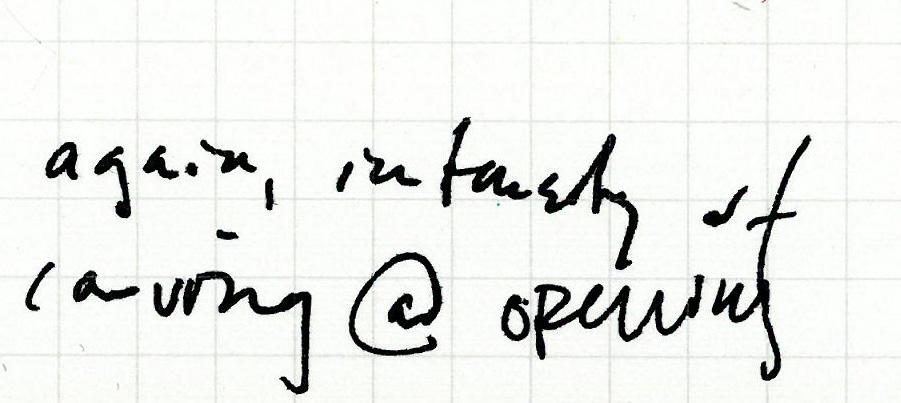 again, intensity of
carving @ opening